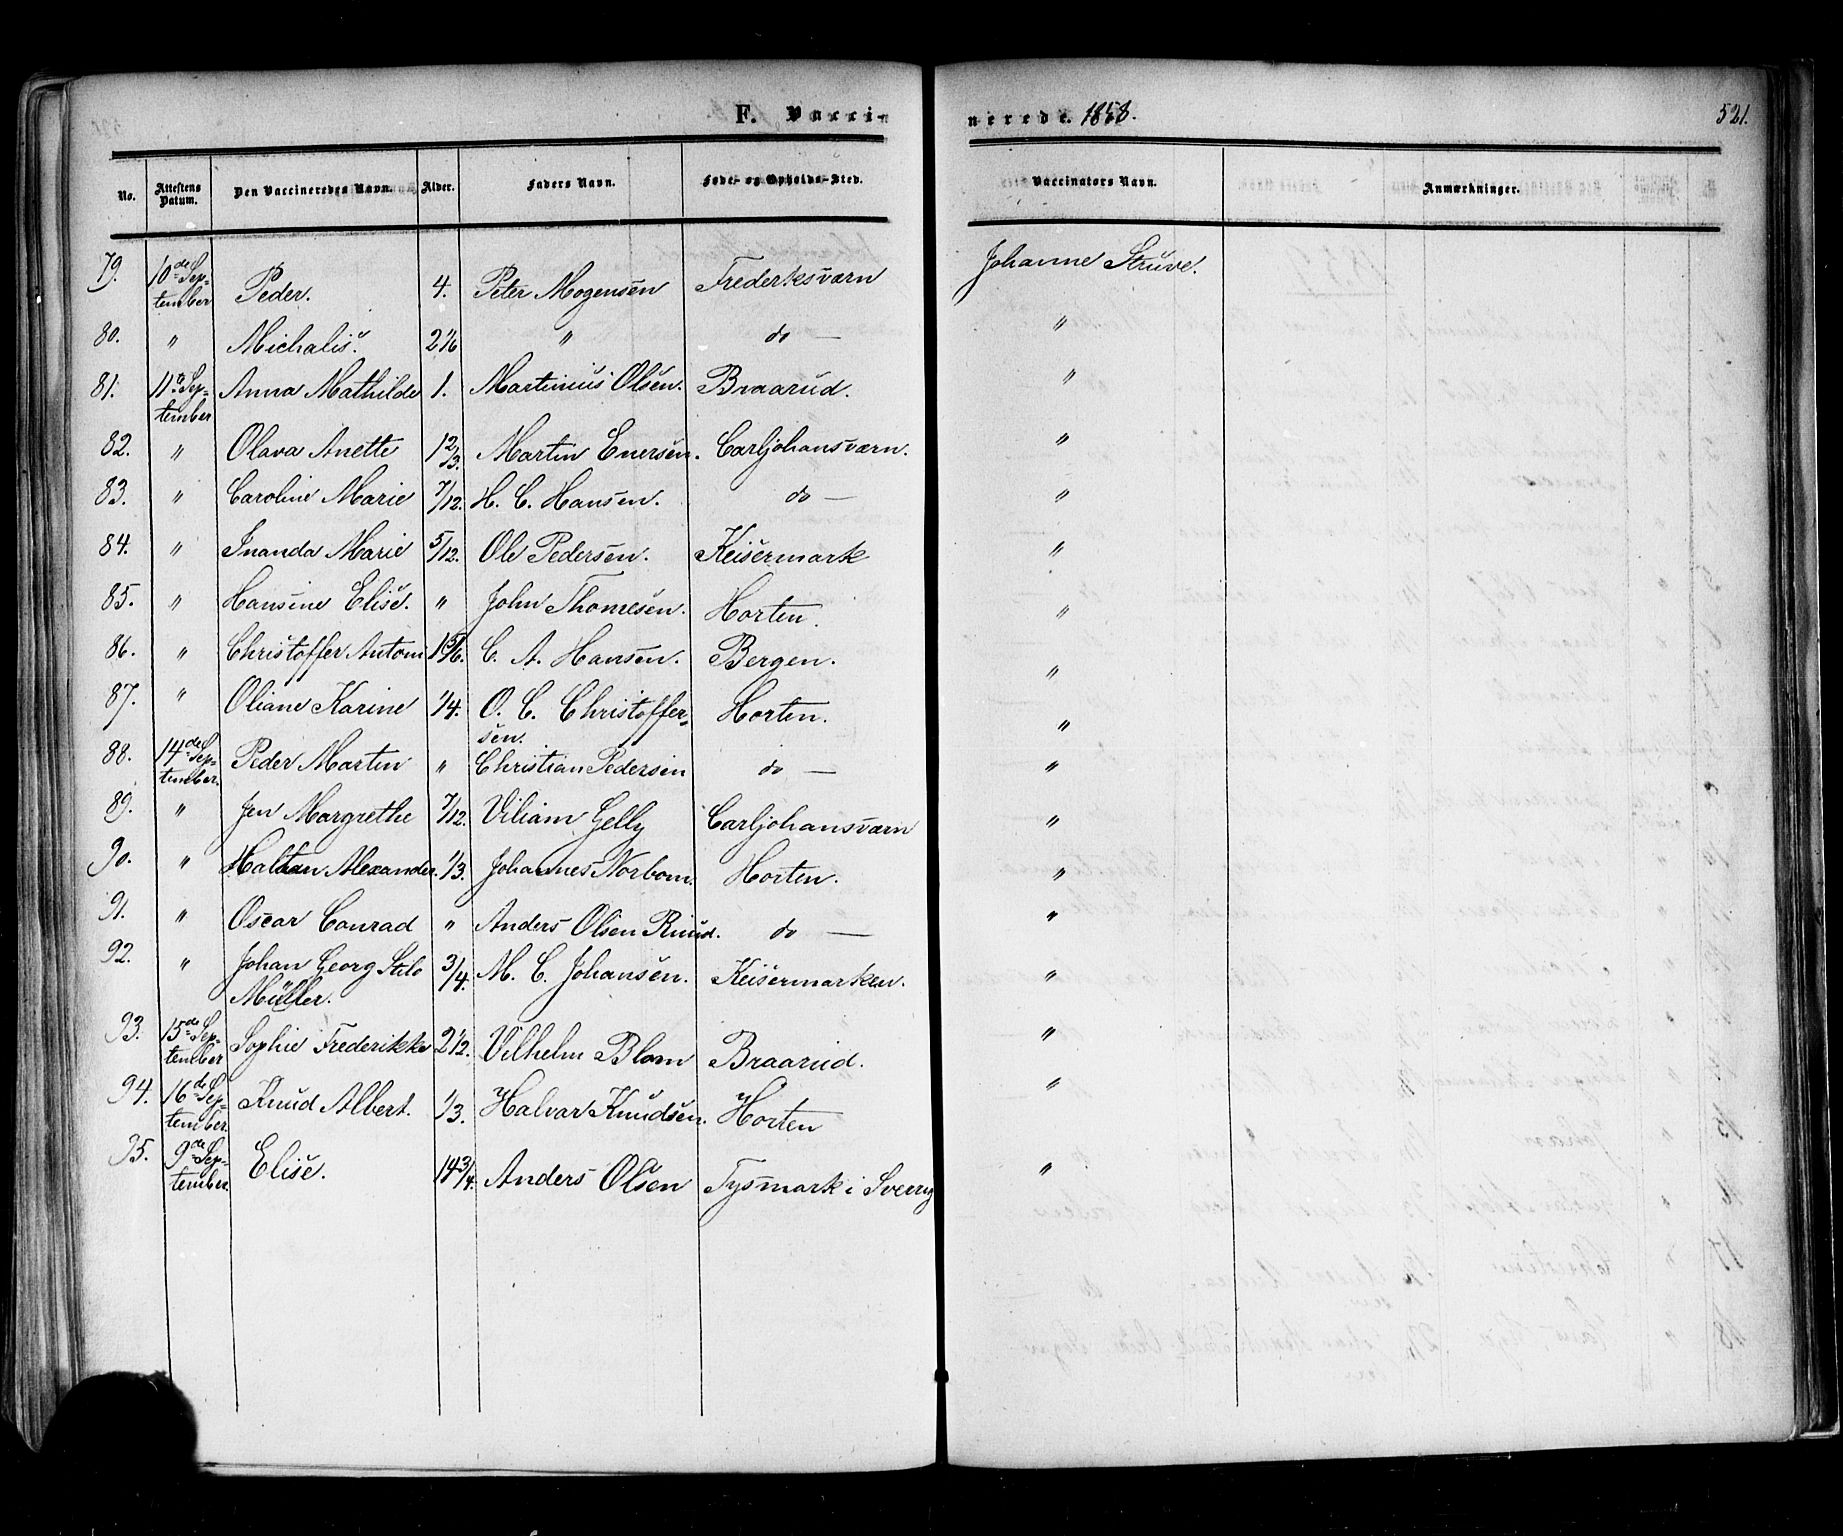 F. Vacci-
nerede. 1858.
521.
No. Attestens Datum. Den Vaccineredes Navn. Alder. Faders Navn. Føde- og Opholds-Sted. Vaccinators Navn. Anmærkninger.
79. 10de Sep- Peder. 4. Peter Mogensen Frederksværn Johanne Struve.
tember
80. " Michalis. 2 1/6 " do — "
81. 11te Sep- Anna Mathilde 1. Martinius Olsen. Braarud. "
tember
82. " Olava Anette 1 2/3. Martin Enersen. Carljohansværn. "
83. " Caroline Marie 7/12. H. C. Hansen. do — "
84. " Inanda Marie 5/12. Ole Pedersen. Keisermark "
85. " Hansine Elise. " John Thomesen. Horten. "
86. " Christoffer Antom C. A. Hansen. Bergen. "
87. " Oliane Karine 1/4. O. C. Christoffer- Horten. "
sen.
88. 14de Sep- Peder Martin " Christian Pedersen do — "
tember.
89. " Jen Margrethe 7/12. Viliam Gelly Carljohansværn "
90. " Alexander. 1/3. Johannes Norbom. Horten. "
91. " Oscar Conrad " Anders Olsen Ruud. do — "
92. " Johan Georg Stilo 3/4. M. C. Johansen. Keisermarken. "
Müller.
93. 15de Sep- Sophie Frederikke 2 1/2. Vilhelm Blom Braarud. "
tember
94. 16de Sep- Knud Albert. 1/3. Halvar Knudsen. Horten "
tember.
95. 9de Sep- Elise. 14 3/4. Anders Olsen Tysmark i Sverrig "
tember.